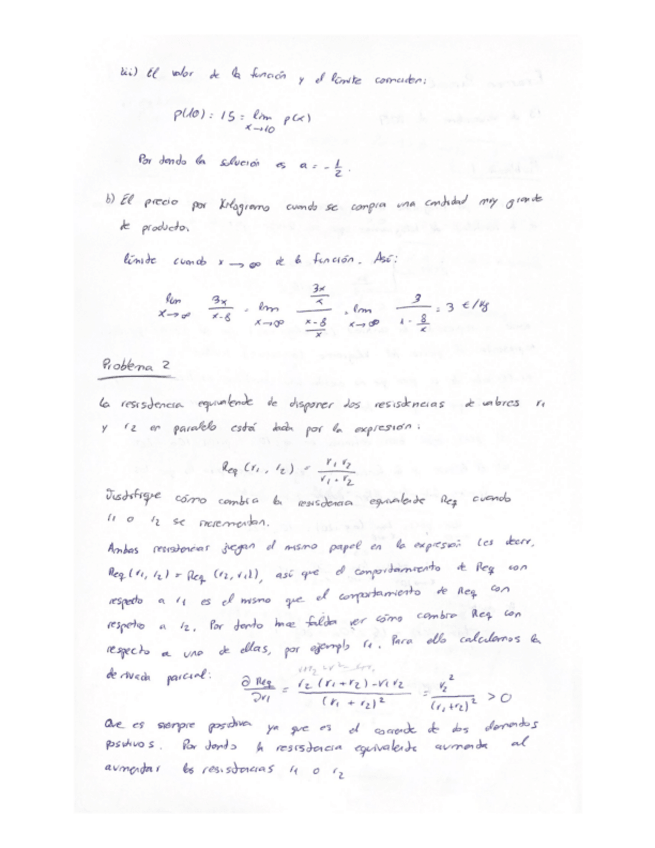 iii) El valor de la función y el límite coinciden:
p(10) = 15 = lim x→10 p(x)
Por tanto la solución es a = - 1/2.
b) El precio por kilogramo cuando se compra una cantidad muy grande
de producto.
límite cuando x → ∞ de la función. Así:
lim x→∞ 3x/(x-8) = lim x→∞ (3x/x)/((x-8)/x) = lim x→∞ 3/(1 - 8/x) = 3 €/kg
Problema 2
La resistencia equivalente de disponer dos resistencias de valores r1
y r2 en paralelo está dada por la expresión:
Req (r1, r2) = r1 r2/(r1 + r2)
Justifique cómo cambia la resistencia equivalente Req cuando
r1 o r2 se incrementan.
Ambas resistencias juegan el mismo papel en la expresión (es decir,
Req (r1, r2) = Req (r2, r1)), así que el comportamiento de Req con
respecto a r1 es el mismo que el comportamiento de Req con
respecto a r2. Por tanto hace falta ver cómo cambia Req con
respecto a una de ellas, por ejemplo r1. Para ello calculamos la
derivada parcial: ∂Req/∂r1 = (r2 (r1 + r2) - r1 r2)/(r1 + r2)² = r2²/(r1 + r2)² > 0
Que es siempre positiva ya que es el cociente de dos
positivos. Por tanto la resistencia equivalente aumenta al
aumentar las resistencias r1 o r2